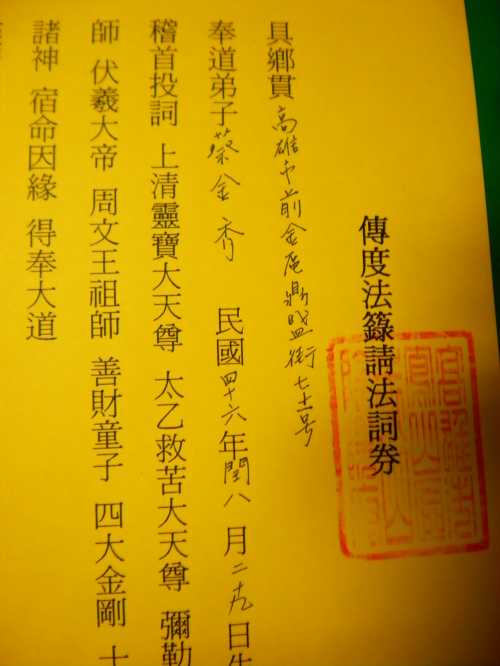 傳度法籙請法詞券
具鄉貫高雄市前金區鼎盛街七十一号
奉道弟子蔡金秀 民國四十六年閏八月二九日生
稽首投詞 上清靈寶大天尊 太乙救苦大天尊 彌勒
師 伏羲大帝 周文王祖師 善財童子 四大金剛 十
諸神 宿命因緣 得奉大道